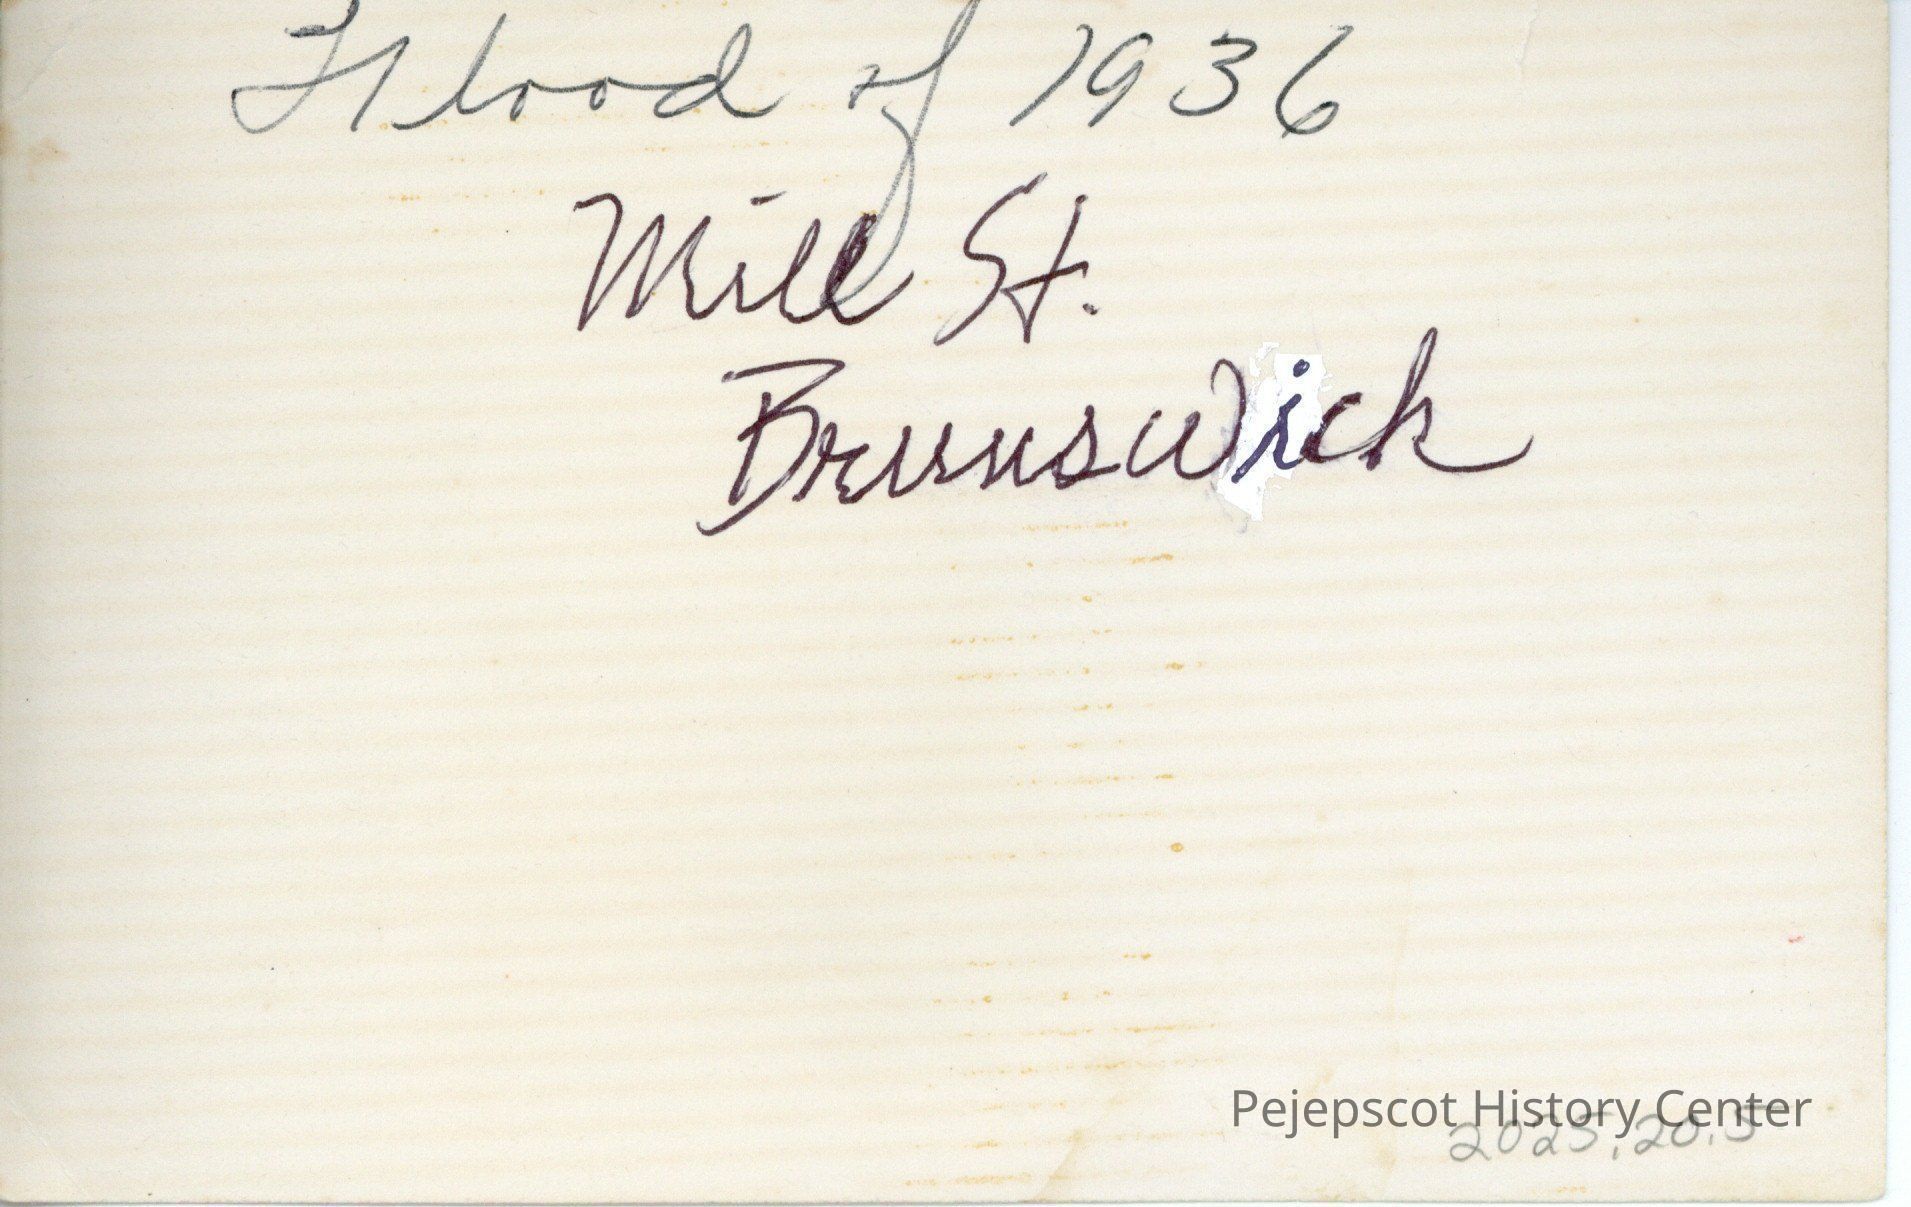 Flood of 1936
Mill St.
Brunswick
Pejepscot History Center
2025.20.5